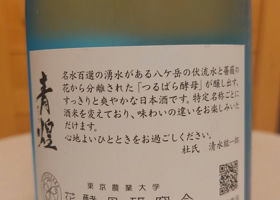 青煌
名水百選の湧水がある八ケ岳の伏流水と薔薇の
花から分離された「つるばら酵母」が醸し出す、
すっきりと爽やかな日本酒です。特定名称ごとに
酒米を変えており、味わいの違いをお楽しみいた
だけます。
心地よいひとときをお過ごしください。
杜氏 清水紘一郎
東京農業大学
花酵母研究会